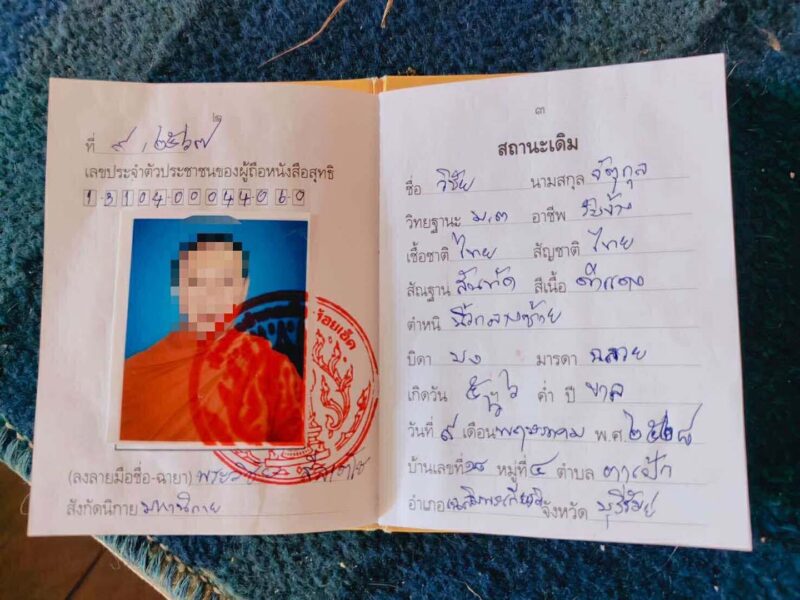 ๒
ที่ ๙ / ๒๕๖๗
เลขประจำตัวประชาชนของผู้ถือหนังสือสุทธิ
1 3 1 0 4 0 0 0 4 4 0 6 0
ร้อยเอ็ด
(ลงลายมือชื่อ-ฉายา) พระวิชัย
สังกัดนิกาย มหานิกาย
๓
สถานะเดิม
ชื่อ วิชัย นามสกุล จัตุกุล
วิทยฐานะ ม.๓ อาชีพ รับจ้าง
เชื้อชาติ ไทย สัญชาติ ไทย
สัณฐาน สันทัด สีเนื้อ ดำแดง
ตำหนิ นิ้วกลางซ้าย
บิดา มารดา ฉลวย
เกิดวัน ค่ำ ปี ขาล
วันที่ ๙ เดือน พฤษภาคม พ.ศ. ๒๕๒๘
บ้านเลขที่ ๑๘ หมู่ที่ ๔ ตำบล ตาเป๊ก
อำเภอ เฉลิมพระเกียรติ จังหวัด บุรีรัมย์